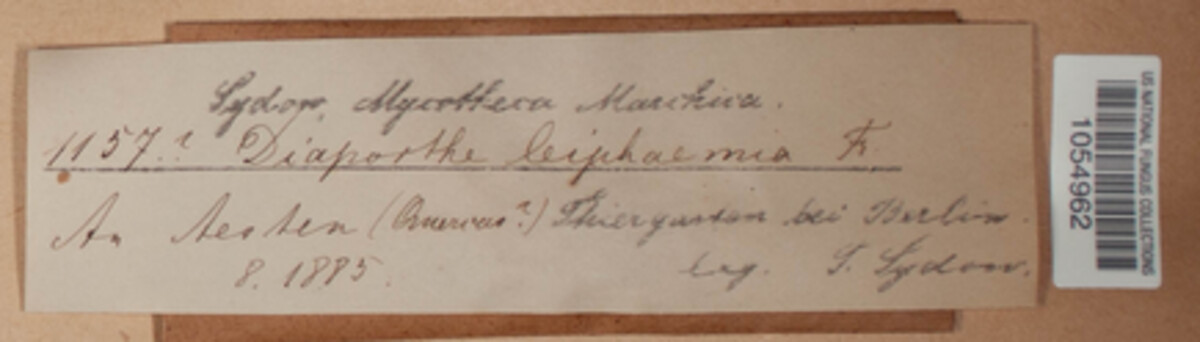 Sydow, Mycotheca Marchica.
1157.? Diaporthe leiphaemia Fr.
An Aesten (Quercus?) Thiergarten bei Berlin.
8. 1885. leg. P. Sydow.
US NATIONAL FUNGUS COLLECTIONS
1054962